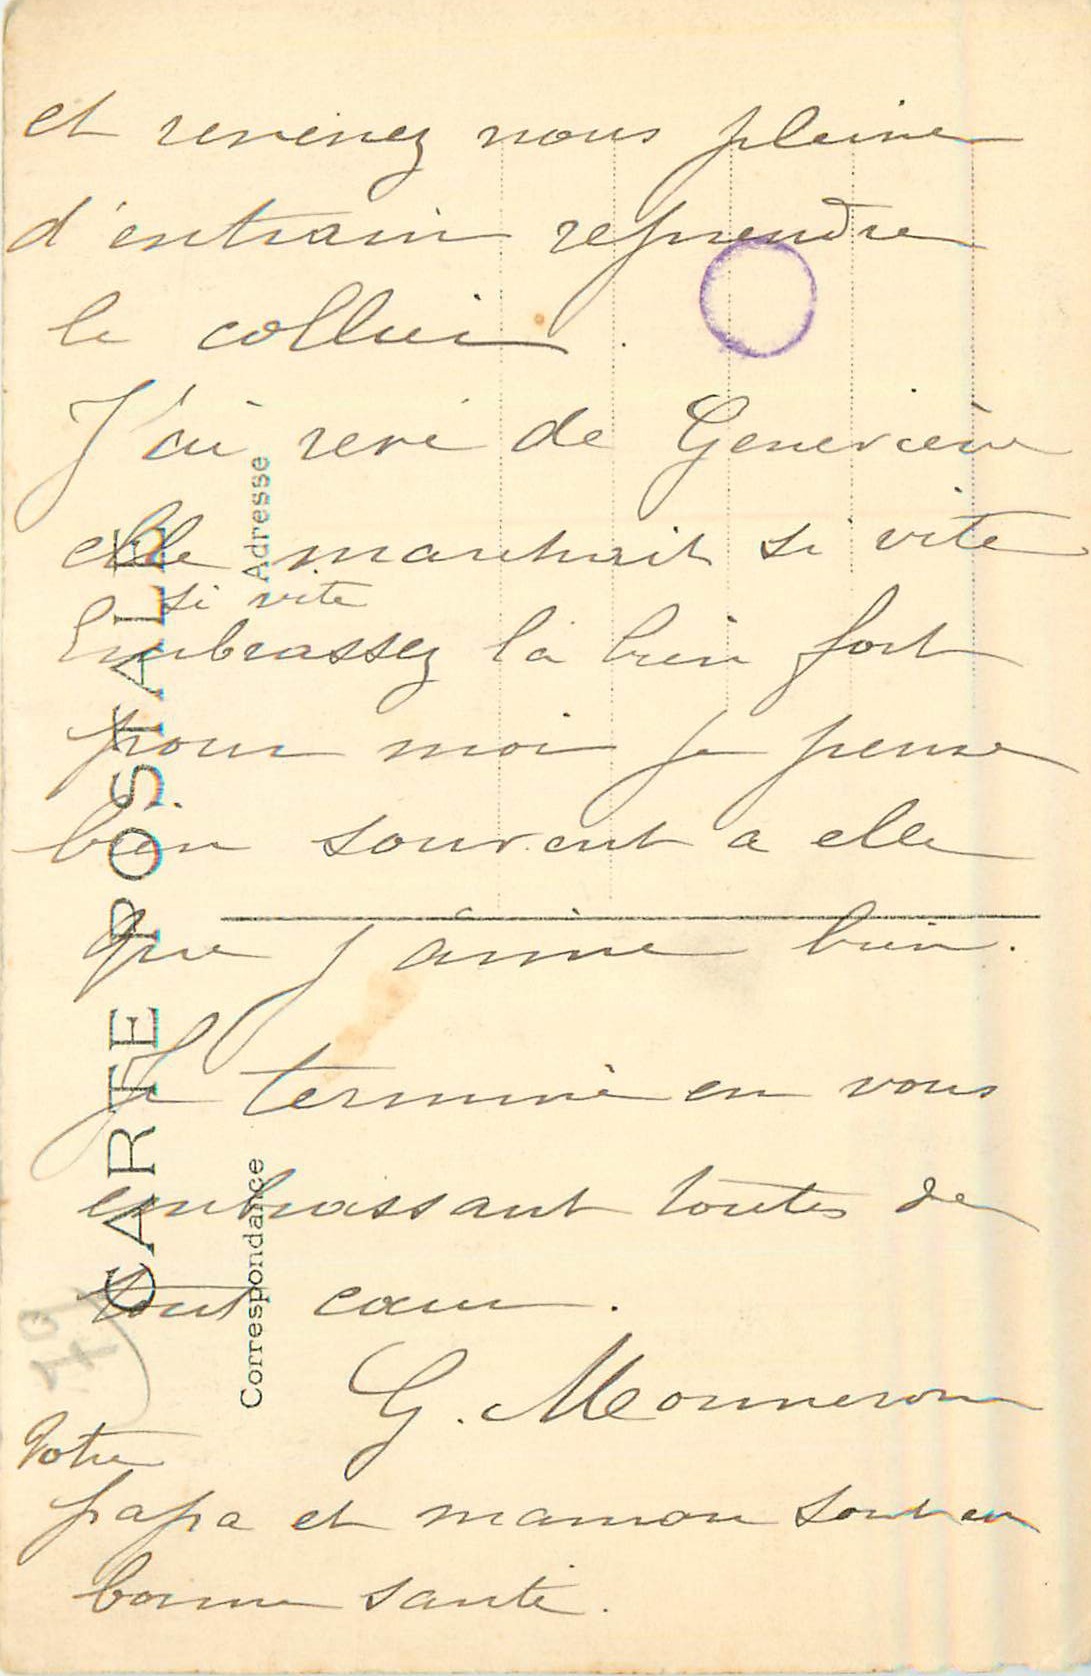 et revenez nous pleine
d'entrain reprendre
le collier.
J'ai revé de Geneviève
elle marchait si vite
si vite
Embrassez là bien fort
pour moi je pense
bien souvent a elle
que j'aime bien.
Je termine en vous
embrassant toutes de
tout cœur.
G. Monneron
Votre
papa et maman sont en
bonne santé.
CARTE POSTALE
Correspondance
Adresse